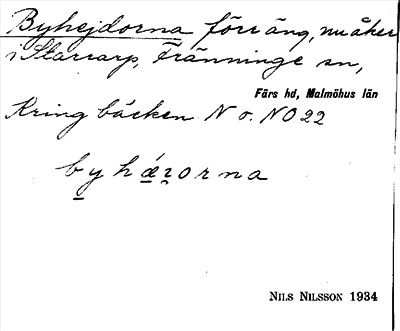 Byhejdorna förr äng, nu åker
i Starrarp, Tränninge sn,
Färs hd, Malmöhus län
Kring bäcken N o. NO 22
byhǽꞅorna
NILS NILSSON 1934